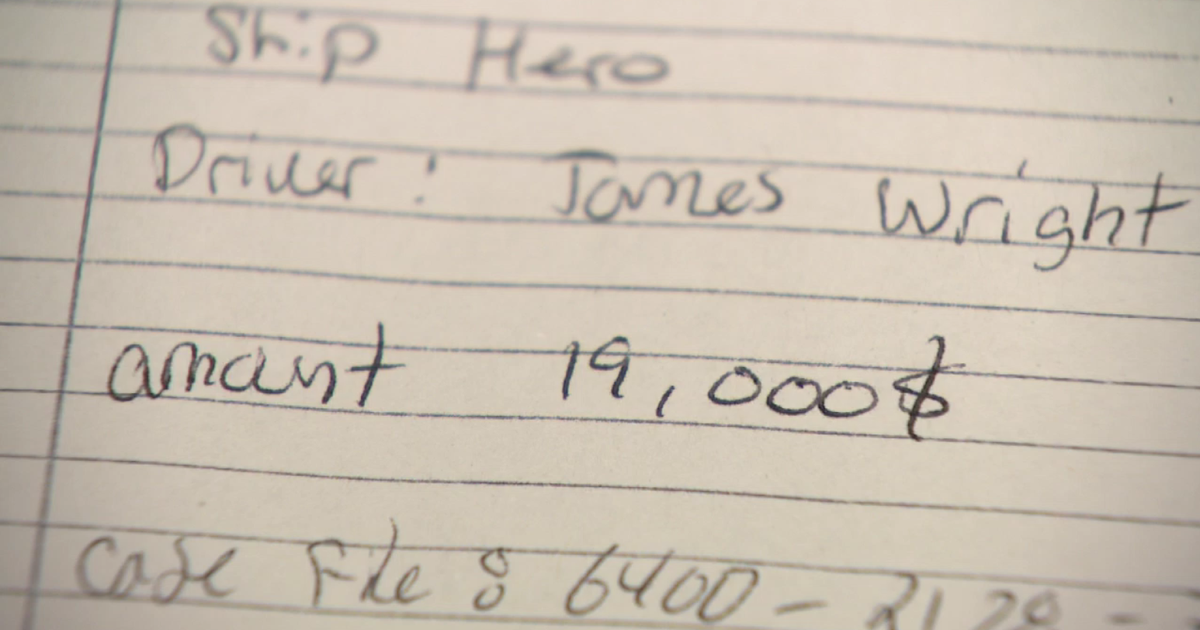 Ship Hero
Driver: James Wright
amount 19,000$
Case File: 6400 - 2128 -